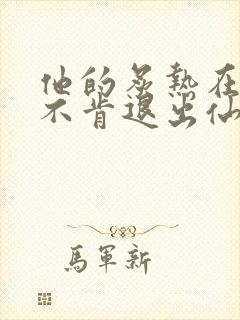 他的炙熱在
不肯退出仙
馬軍新